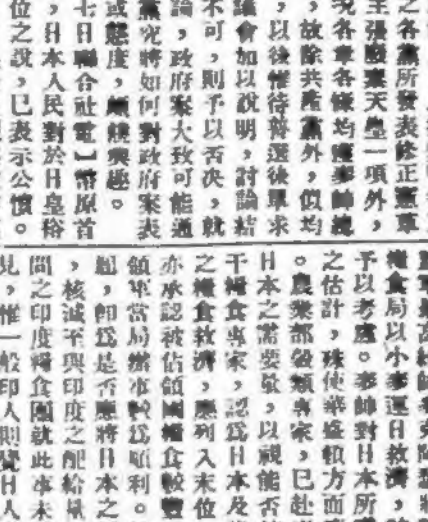 之各黨所發表修正憲草
主張廢棄天皇一項外，
現各章各條均獲麥帥總
，故除共產黨外，似均
，以後惟待普選後單求
議會加以說明，討論結
不可，則予以否決，就
論，政府案大致可能通
黨究將如何對政府案表
或態度，頗饒興趣。
七日聯合社電】幣原首
，日本人民對於日皇裕
位之說，已表示公憤。
糧食局以小麥運日救濟，
予以考慮。麥帥對日本所
之估計，殊使華盛頓方面
。農業部穀類專家，已赴
日本之需要量，以視能否
干糧食專家，認爲日本及
之糧食救濟，應列入末位
亦承認被佔領國糧食較豐
領軍當局辦事較爲順利。
題，卽爲是否應將日本之
，核減至與印度之配給量
問之印度糧食團就此事未
見，惟一般印人則覺日人